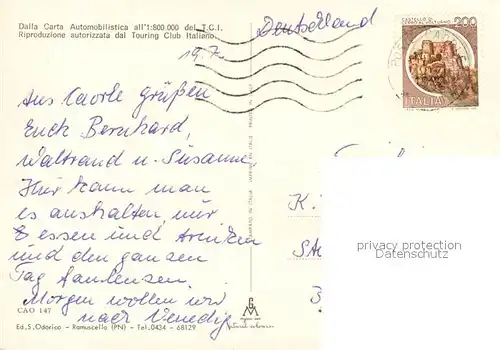 Dalla Carta Automobilistica all'1:800.000 del T.C.I.
Riproduzione autorizzata dal Touring Club Italiano
Deutschland
19.7.
CASTELLO DI
200
ITALIA
Aus Caorle grüßen
Euch Bernhard,
Waltraud u. Susanne,
Hier kann man
es aushalten, nur
essen und trinken
und den ganzen
Tag faulenzen.
Morgen wollen wir
nach Venedig
K.
privacy protection
Datenschutz
CAO 147
Ed. S. Odorico - Ramuscello (PN) - Tel. 0434 - 68129